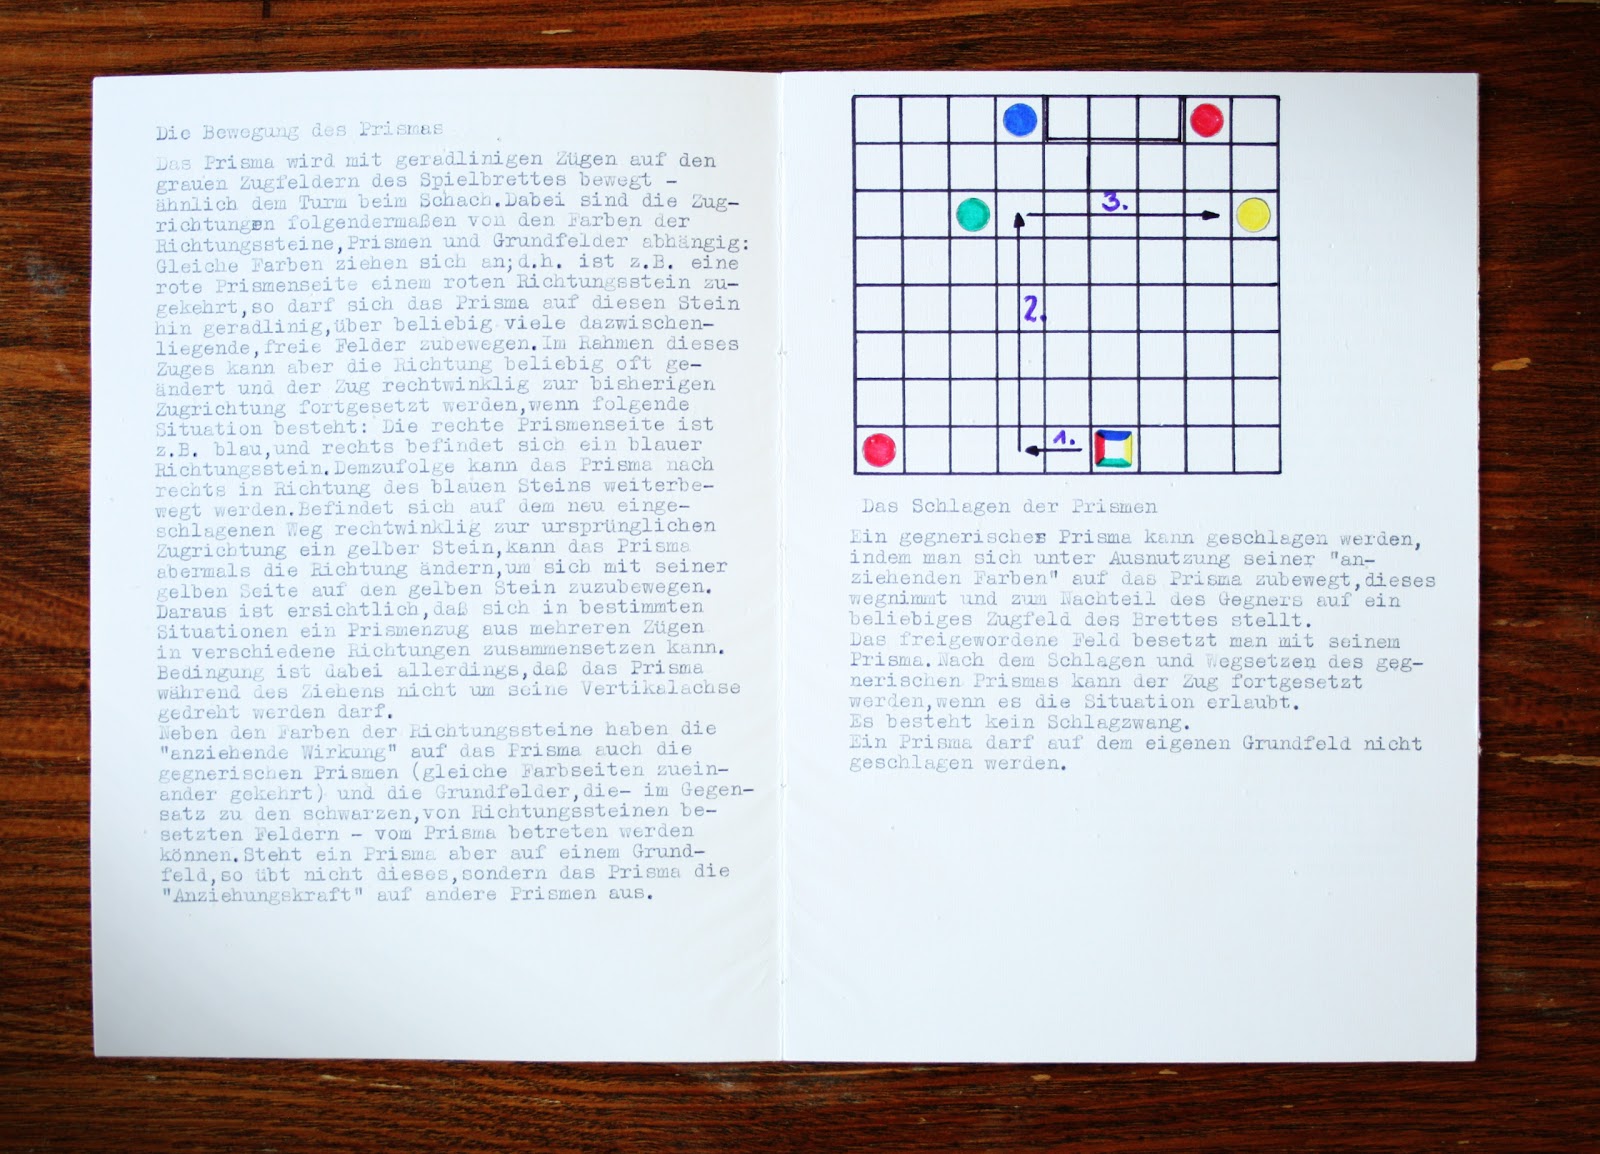 Die Bewegung des Prismas
Das Prisma wird mit geradlinigen Zügen auf den
grauen Zugfeldern des Spielbrettes bewegt -
ähnlich dem Turm beim Schach.Dabei sind die Zug-
richtungen folgendermaßen von den Farben der
Richtungssteine,Prismen und Grundfelder abhängig:
Gleiche Farben ziehen sich an;d.h. ist z.B. eine
rote Prismenseite einem roten Richtungsstein zu-
gekehrt,so darf sich das Prisma auf diesen Stein
hin geradlinig,über beliebig viele dazwischen-
liegende,freie Felder zubewegen.Im Rahmen dieses
Zuges kann aber die Richtung beliebig oft ge-
ändert und der Zug rechtwinklig zur bisherigen
Zugrichtung fortgesetzt werden,wenn folgende
Situation besteht: Die rechte Prismenseite ist
z.B. blau,und rechts befindet sich ein blauer
Richtungsstein.Demzufolge kann das Prisma nach
rechts in Richtung des blauen Steins weiterbe-
wegt werden.Befindet sich auf dem neu einge-
schlagenen Weg rechtwinklig zur ursprünglichen
Zugrichtung ein gelber Stein,kann das Prisma
abermals die Richtung ändern,um sich mit seiner
gelben Seite auf den gelben Stein zuzubewegen.
Daraus ist ersichtlich,daß sich in bestimmten
Situationen ein Prismenzug aus mehreren Zügen
in verschiedene Richtungen zusammensetzen kann.
Bedingung ist dabei allerdings,daß das Prisma
während des Ziehens nicht um seine Vertikalachse
gedreht werden darf.
Neben den Farben der Richtungssteine haben die
"anziehende Wirkung" auf das Prisma auch die
gegnerischen Prismen (gleiche Farbseiten zuein-
ander gekehrt) und die Grundfelder,die- im Gegen-
satz zu den schwarzen,von Richtungssteinen be-
setzten Feldern - vom Prisma betreten werden
können.Steht ein Prisma aber auf einem Grund-
feld,so übt nicht dieses,sondern das Prisma die
"Anziehungskraft" auf andere Prismen aus.
3.
2.
1.
Das Schlagen der Prismen
Ein gegnerisches Prisma kann geschlagen werden,
indem man sich unter Ausnutzung seiner "an-
ziehenden Farben" auf das Prisma zubewegt,dieses
wegnimmt und zum Nachteil des Gegners auf ein
beliebiges Zugfeld des Brettes stellt.
Das freigewordene Feld besetzt man mit seinem
Prisma.Nach dem Schlagen und Wegsetzen des geg-
nerischen Prismas kann der Zug fortgesetzt
werden,wenn es die Situation erlaubt.
Es besteht kein Schlagzwang.
Ein Prisma darf auf dem eigenen Grundfeld nicht
geschlagen werden.